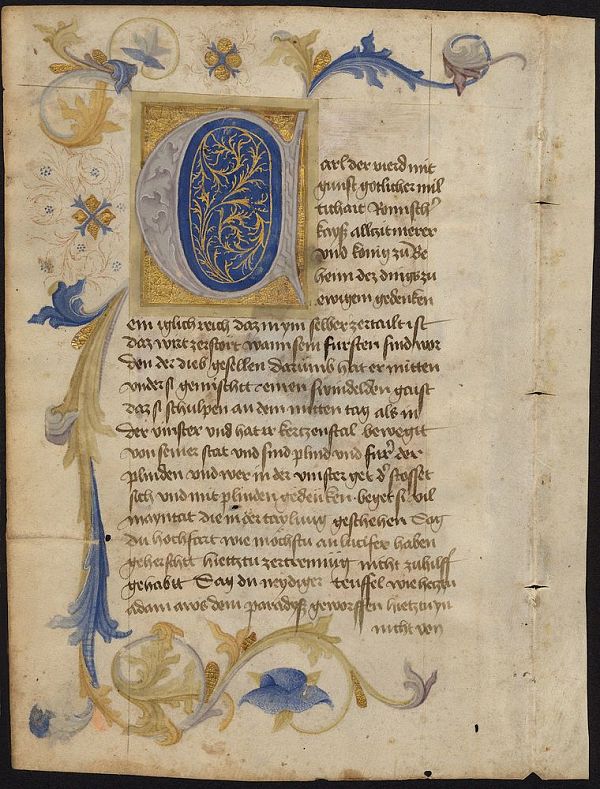 Carl der vierd mit
gunst gotlicher mil
tichait Romisch'
kayß allczit merer
vnd konig zu Be
heim dez dings zu
ewigem gedenken
ein yglich reich daz in ym selber zertailt ist
daz wirt zerstort wann sein fursten sind wor
den der dieb gesellen darumb hat er mitten
vnder si gemischtt einen swindelden gaist
daz si schulpen an dem mitten tag als in
der vinster vnd hat ir kertzenstal bewegit
von seiner stat vnd sind plind vnd furer der
plinden vnd wer in der vinster get d' stosset
sich vnd mit plinden gedenken beget si vil
mayntat die in der taylung geschehen Sag
du hochfart wie mochstu an lucifer haben
geherschtt hiettztu zertrennug nicht zu hilff
gehabit Sag du neydiger teuffel wie hetztu
adam awos dem paradyß geworffen hietztu yn
nicht von